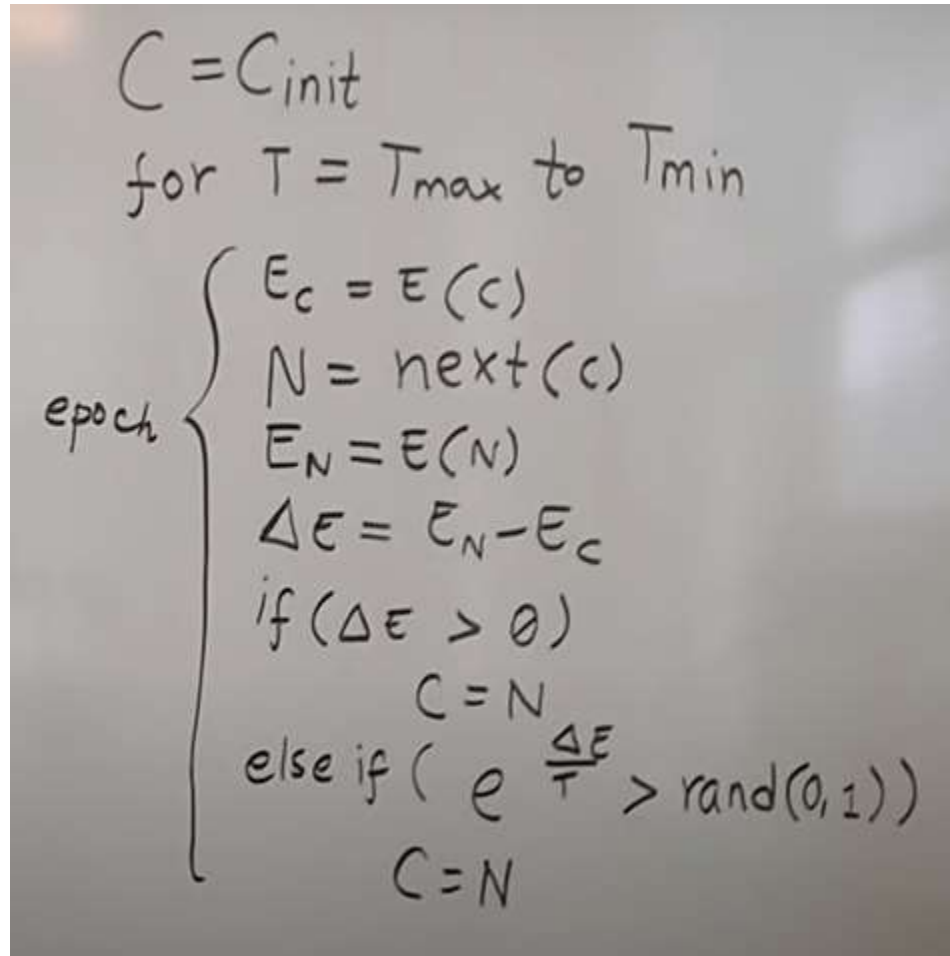 C = Cinit
for T = Tmax to Tmin
epoch
EC = E(C)
N = next(C)
EN = E(N)
ΔE = EN-EC
if (ΔE > 0)
C = N
else if ( e^ΔE/T > rand(0,1))
C = N